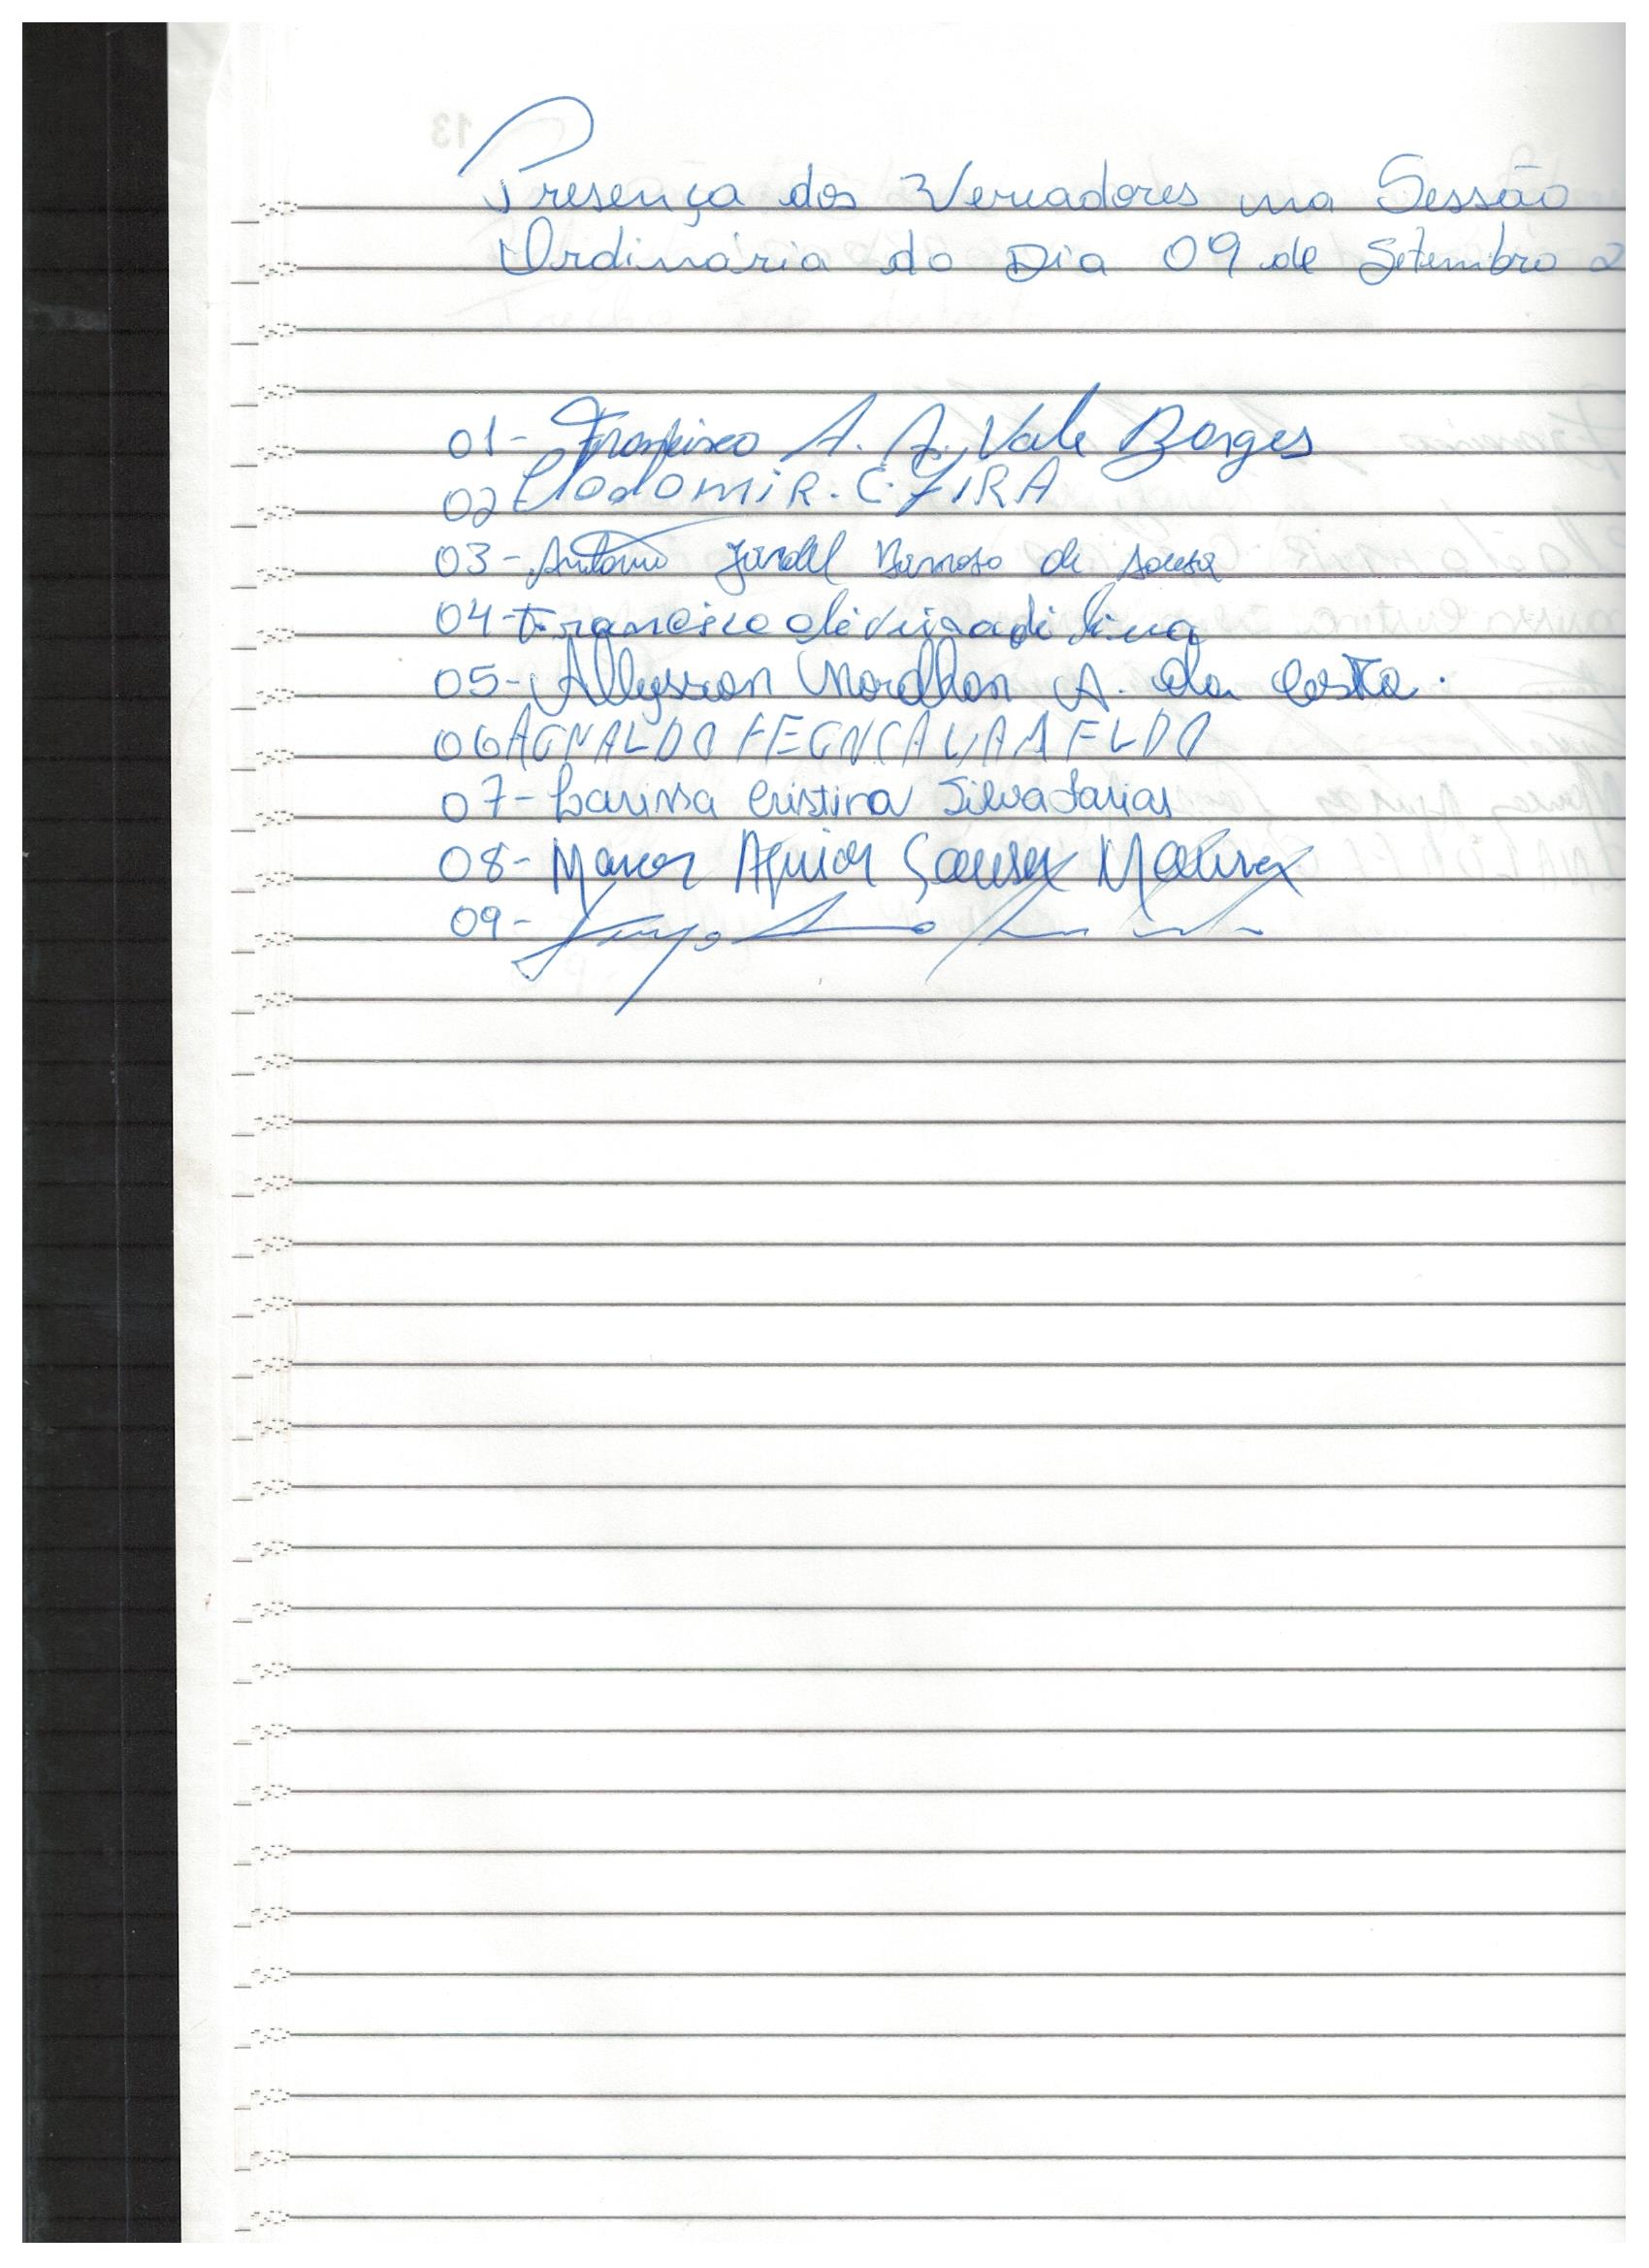 Presença dos Vereadores na Sessão
Ordinária do Dia 09 de Setembro 2
01- Francisco A. A. Vale Borges
02 Clodomir. C.
03- Antonio Jardel Barroso de Sousa
04- Francisco oliveira de lima
05- Allysson A. da Costa.
06 AGNALDO
07- Larissa Cristina Silva Farias
08- Marcos Sousa
09-